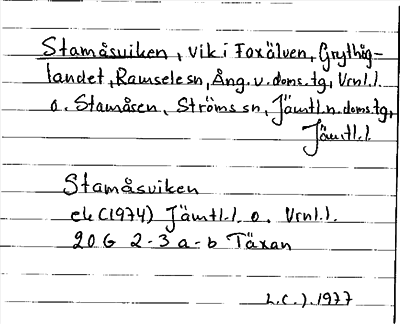 Stamåsviken, vik i Foxälven, Grythög-
landet, Ramsele sn, Ång.v.doms.tg, Vrnl.l.
o. Stamåsen, Ströms sn, Jämtl.n.doms.tg,
Jämtl.l.
Stamåsviken
ek (1974) Jämtl.l. o. Vrnl.l.
20 G 2-3 a-b Täxan
L.C.J. 1977